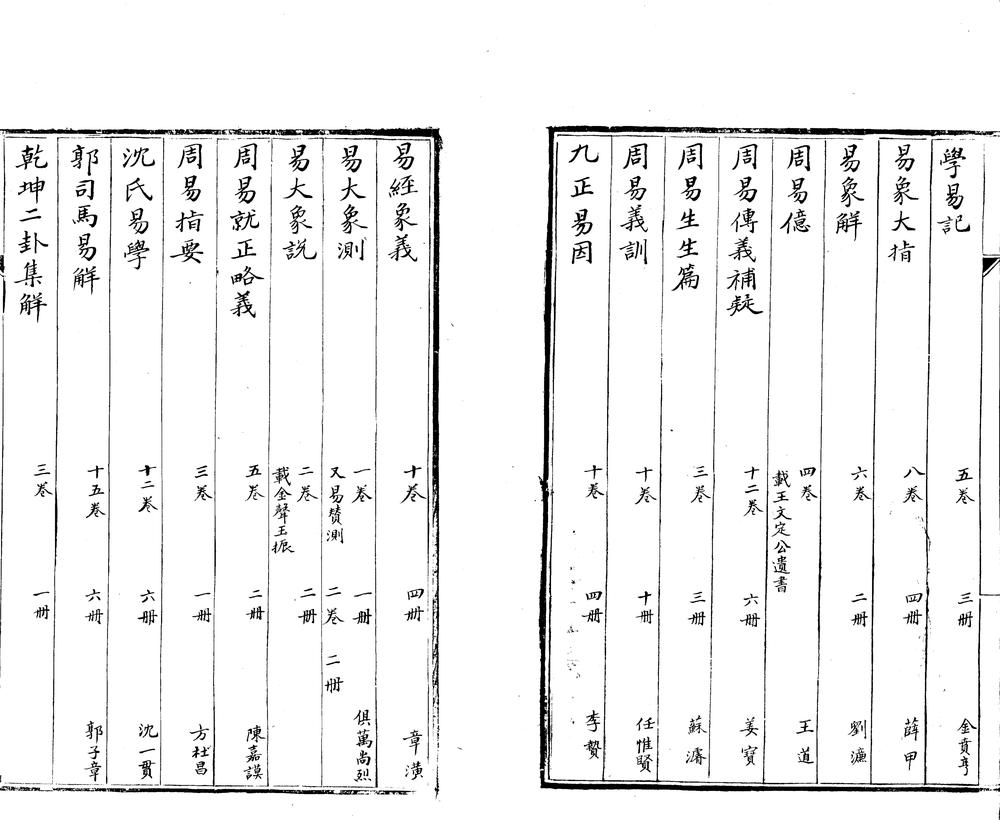 學易記 五卷 三册 金賁亨
易象大指 八卷 四册 薛甲
易象解 六卷 二册 劉濂
周易億 四卷 載王文定公遺書 王道
周易傳義補疑 十二卷 六册 姜寶
周易生生篇 三卷 三册 蘇濬
周易義訓 十卷 十册 任惟賢
九正易因 十卷 四册 李贄
易經象義 十卷 四册 章潢
易大象測 一卷 一册 俱萬尚烈
又易贊測 二卷 二册
易大象説 二卷 二册
載金聲玉振
周易就正略義 五卷 二册 陳嘉謨
周易指要 三卷 一册 方社昌
沈氏易學 十二卷 六册 沈一貫
郭司馬易解 十五卷 六册 郭子章
乾坤二卦集解 三卷 一册